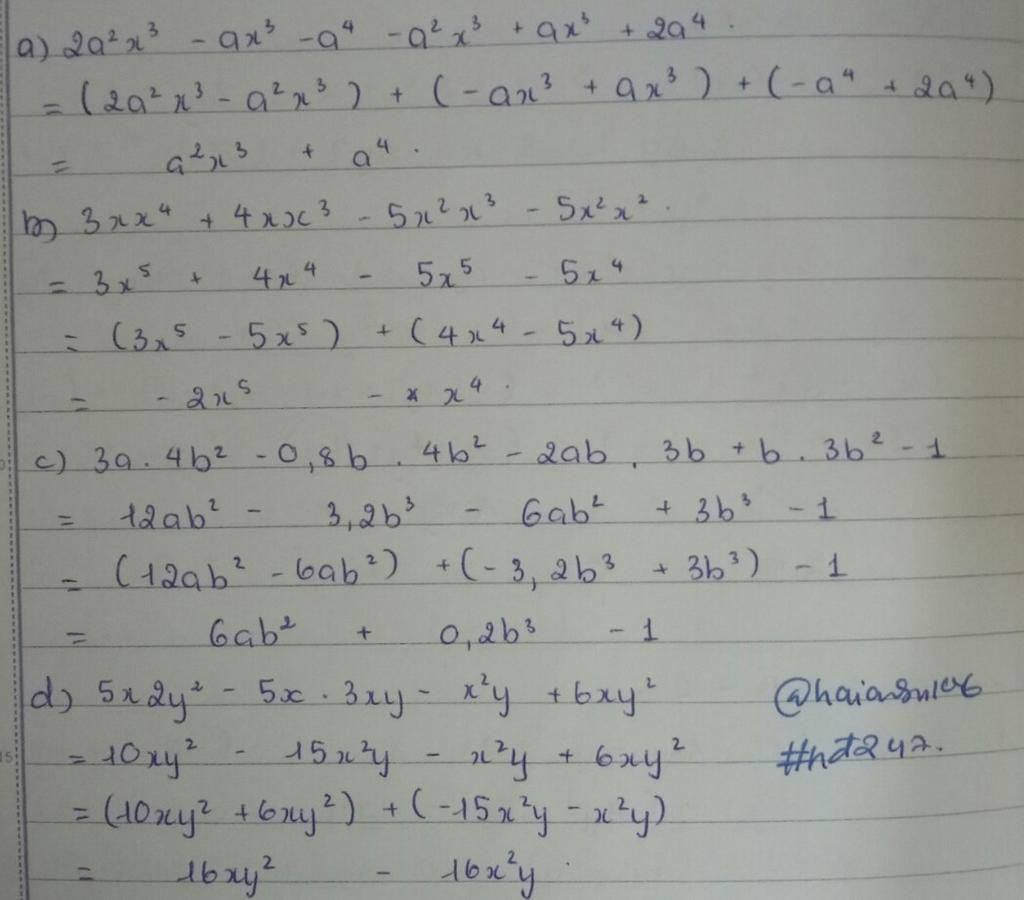 a) 2a²x³ - ax³ - a⁴ - a²x³ + ax³ + 2a⁴.
= (2a²x³ - a²x³) + (-ax³ + ax³) + (-a⁴ + 2a⁴)
= a²x³ + a⁴.
b) 3xx⁴ + 4xx³ - 5x²x³ - 5x²x².
= 3x⁵ + 4x⁴ - 5x⁵ - 5x⁴
= (3x⁵ - 5x⁵) + (4x⁴ - 5x⁴)
= - 2x⁵ - x⁴.
c) 3a . 4b² - 0,8b . 4b² - 2ab . 3b + b . 3b² - 1
= 12ab² - 3,2b³ - 6ab² + 3b³ - 1
= (12ab² - 6ab²) + (-3,2b³ + 3b³) - 1
= 6ab² + 0,2b³ - 1
d) 5x2y² - 5x . 3xy - x²y + 6xy²
= 10xy² - 15x²y - x²y + 6xy²
#hd247.
= (10xy² + 6xy²) + (-15x²y - x²y)
= 16xy² - 16x²y.